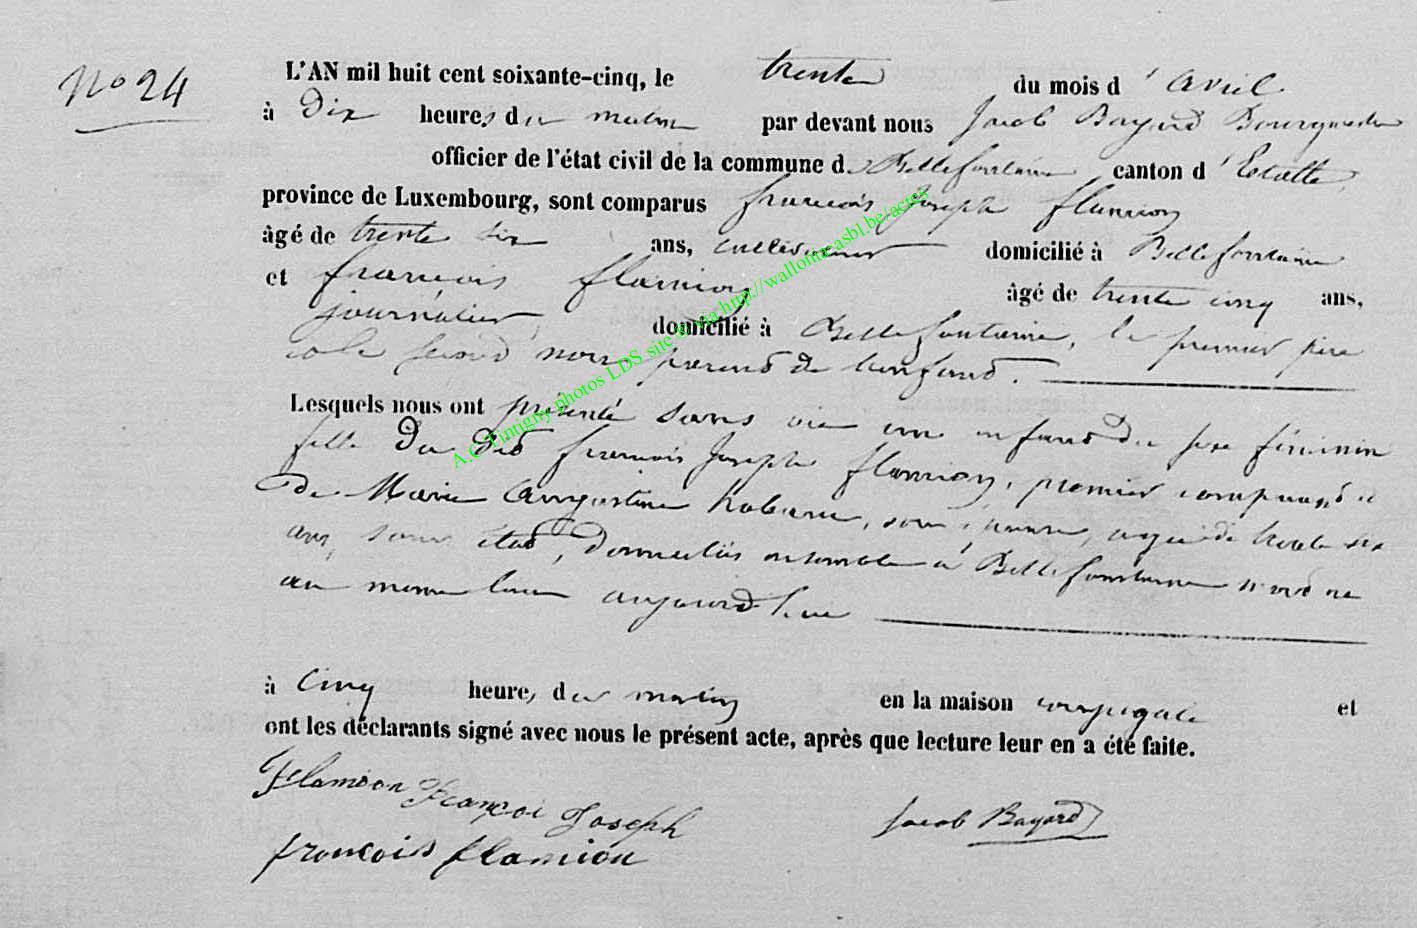 N° 24
L'AN mil huit cent soixante-cinq, le trente du mois d'avril
à Dix heures du matin par devant nous Jacob Bayard Bourgmestre
officier de l'état civil de la commune de Bellefontaine canton d'Etalle,
province de Luxembourg, sont comparus françois Joseph flamion
âgé de trente six ans, cultivateur domicilié à Bellefontaine
et françois flamion âgé de trente cinq ans,
journalier, domicilié à Bellefontaine, le premier père
et le second non parent de l'enfant.
Lesquels nous ont présenté sans vie un enfant du sexe féminin
fille du dit françois Joseph flamion, premier comparant et
de Marie Augustine, son épouse, agée de trente six
ans, sans état, domiciliés ensemble à Bellefontaine
au même lieu aujourd'hui
à Cinq heures du matin en la maison conjugale et
ont les déclarants signé avec nous le présent acte, après que lecture leur en a été faite.
Flamion Françoi Joseph
Jacob Bayard
françois flamion
A.C. Tintigny photos LDS site & via http://wallonia-asbl.be/actes